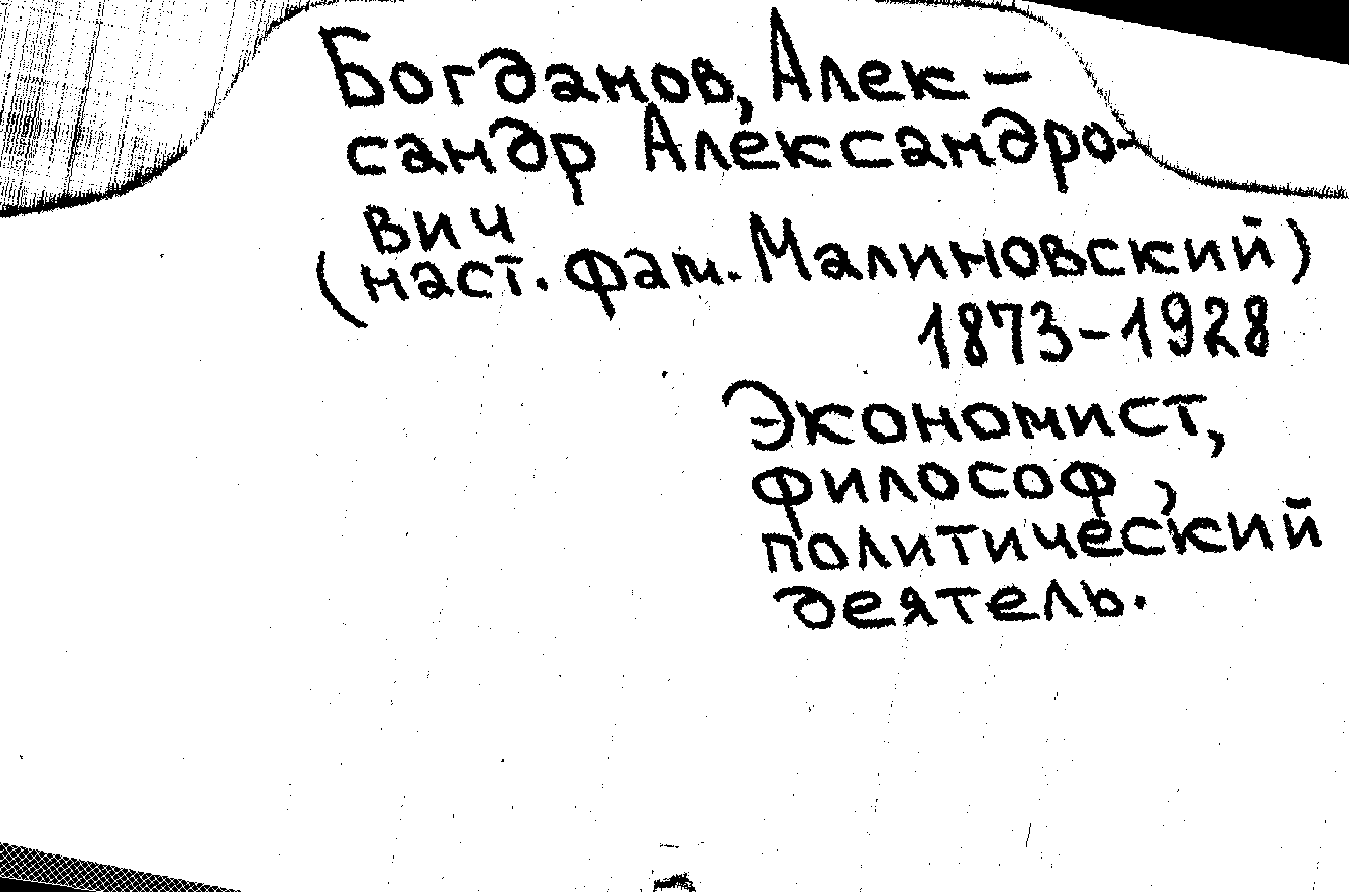 Богданов, Алек-
сандр Александро-
вич
(наст. фам. Малиновский)
1873-1928
Экономист,
философ,
политический
деятель.